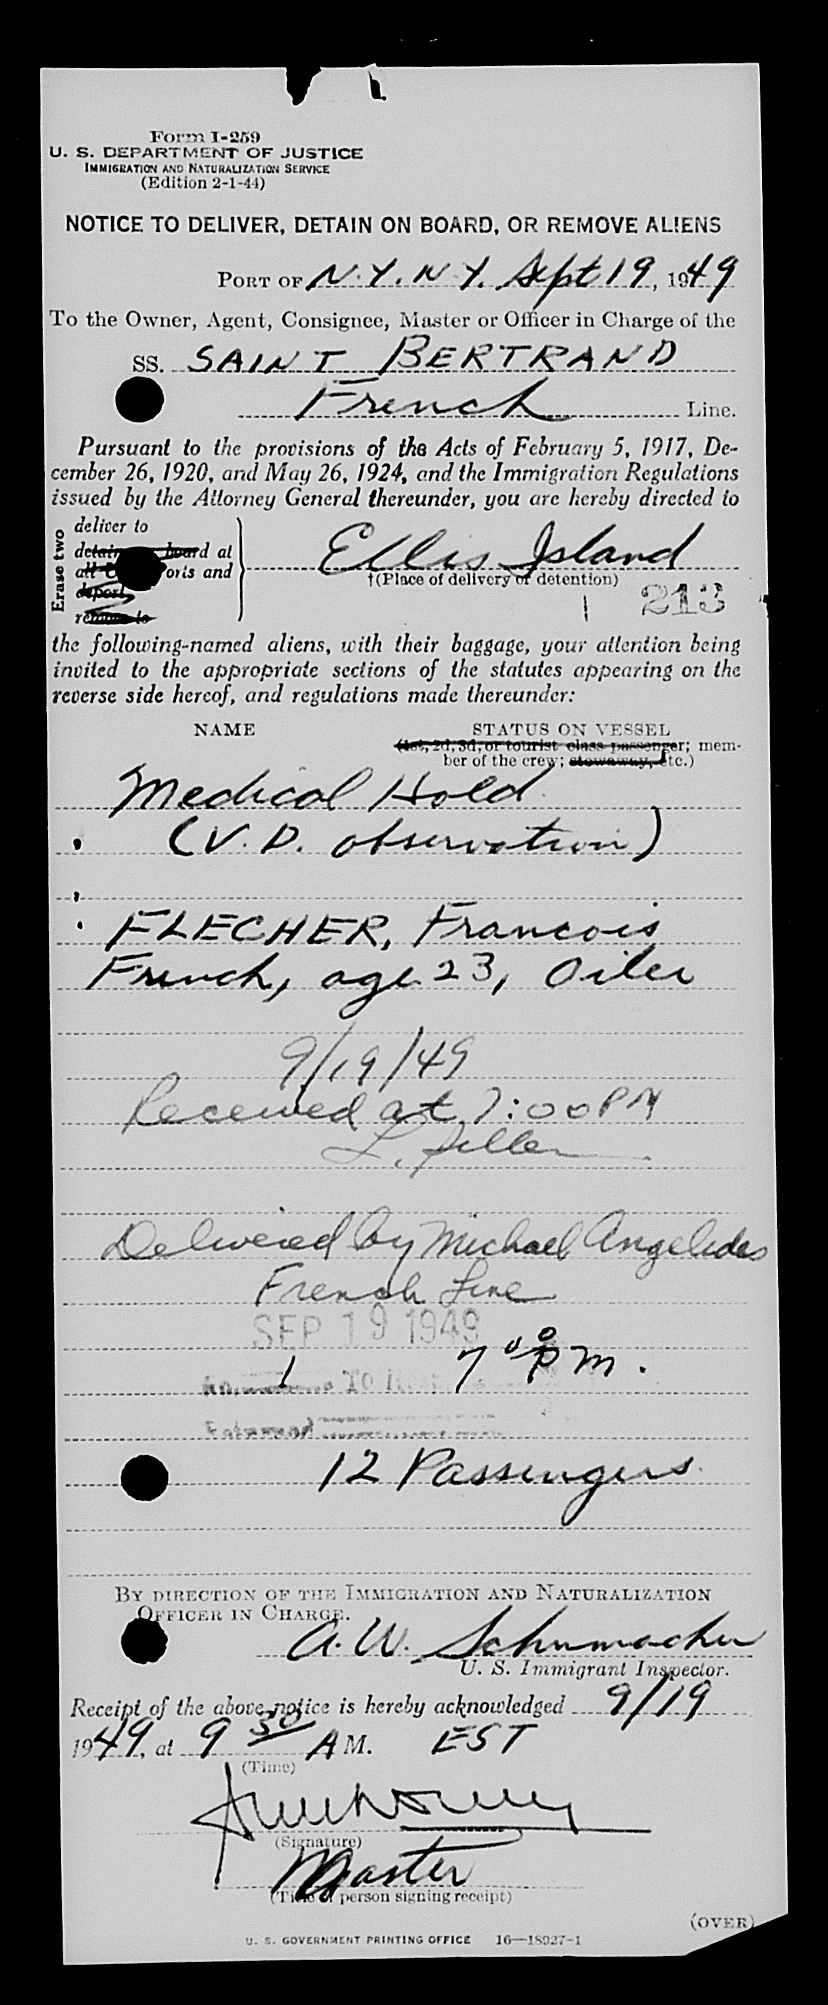 Form I-259
U. S. DEPARTMENT OF JUSTICE
IMMIGRATION AND NATURALIZATION SERVICE
(Edition 2-1-44)
NOTICE TO DELIVER, DETAIN ON BOARD, OR REMOVE ALIENS
PORT OF N.Y. N.Y. Sept 19, 1949
To the Owner, Agent, Consignee, Master or Officer in Charge of the
SS. SAINT BERTRAND
French Line.
Pursuant to the provisions of the Acts of February 5, 1917, De-
cember 26, 1920, and May 26, 1924, and the Immigration Regulations
issued by the Attorney General thereunder, you are hereby directed to
Erase two
deliver to
detain board at
all orts and
deport
remove to
Ellis Island
†(Place of delivery or detention)
1 213
the following-named aliens, with their baggage, your attention being
invited to the appropriate sections of the statutes appearing on the
reverse side hereof, and regulations made thereunder:
NAME STATUS ON VESSEL
(1st, 2d, 3d, or tourist class passenger; mem-
ber of the crew; stowaway, etc.)
Medical Hold
(V.D. observation)
FLECHER, Francois
French, age 23, Oiler
9/19/49
Received at 7:00 PM
L.
Delivered by Michael Angelides
French Line
SEP 19 1949
1 7 00 P.M.
TO
12 Passengers
BY DIRECTION OF THE IMMIGRATION AND NATURALIZATION
OFFICER IN CHARGE.
A. W. Schumacher
U. S. Immigrant Inspector.
Receipt of the above notice is hereby acknowledged 9/19
1949, at 9 30 A M. EST
(Time)
(Signature)
Master
(Title of person signing receipt)
(OVER)
U. S. GOVERNMENT PRINTING OFFICE 16—18927-1